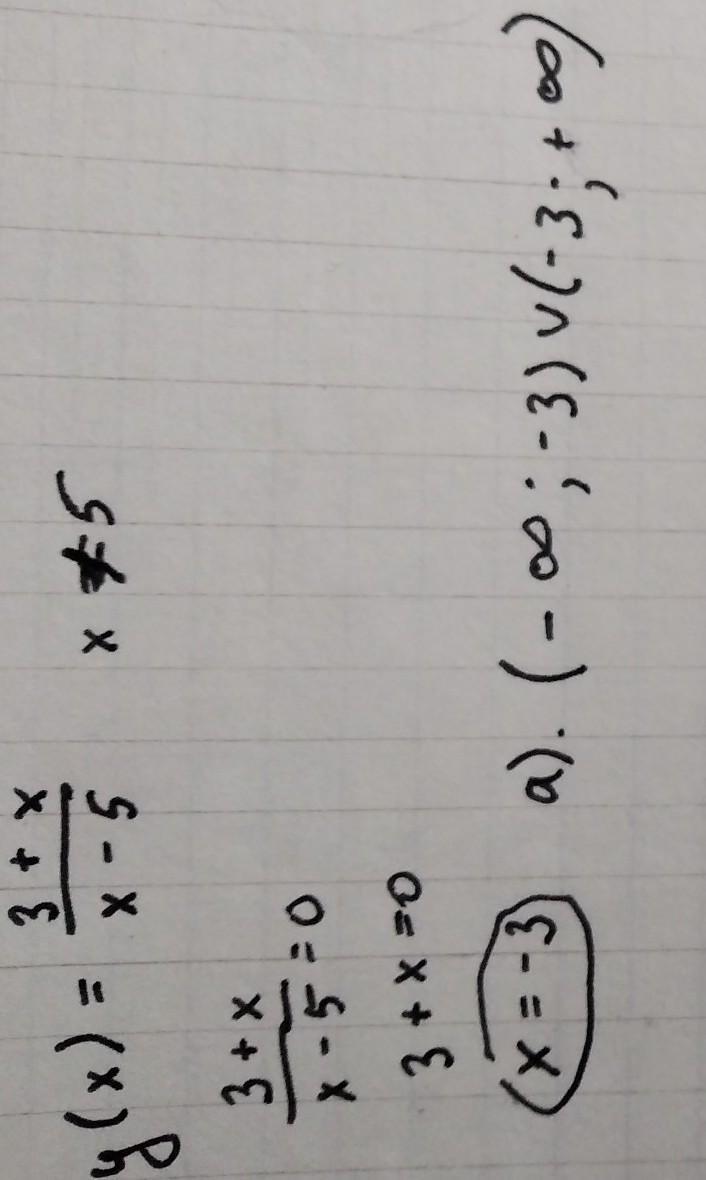 y(x) = \frac{3 + x}{x - 5} x ≠ 5
\frac{3 + x}{x - 5} = 0
3 + x = 0
x = -3 a). (-∞; -3) ∨ (-3; +∞)